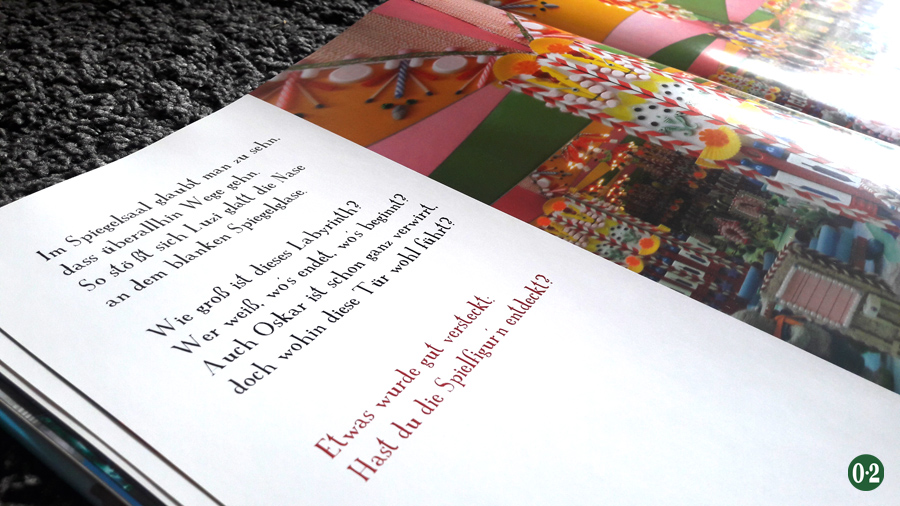 Im Spiegelsaal glaubt man zu sehn,
dass überallhin Wege gehn.
So stößt sich Luzi glatt die Nase
an dem blanken Spiegelglase.
Wie groß ist dieses Labyrinth?
Wer weiß, wo's endet, wo's beginnt?
Auch Oskar ist schon ganz verwirrt,
doch wohin diese Tür wohl führt?
Etwas wurde gut versteckt.
Hast du die Spielfigur'n entdeckt?
0·2